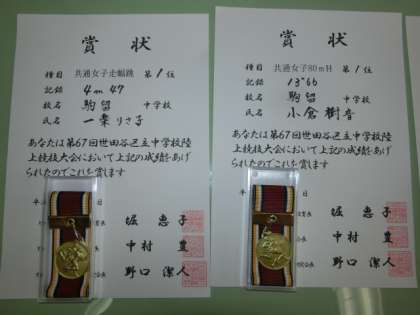 賞状
種目 共通女子走幅跳 第1位
記録 4m47
校名 駒留 中学校
氏名 一条りさ子
あなたは第67回世田谷区立中学校陸
上競技大会において上記の成績をあげ
られたのでこれを賞します
平
堀 恵子
中村 豊
野口 潔人
賞状
種目 共通女子80mH 第1位
記録 13"66
校名 駒留 中学校
氏名 小倉樹音
あなたは第67回世田谷区立中学校陸
上競技大会において上記の成績をあげ
られたのでこれを賞します
平 日
堀 恵子
中村 豊
野口 潔人